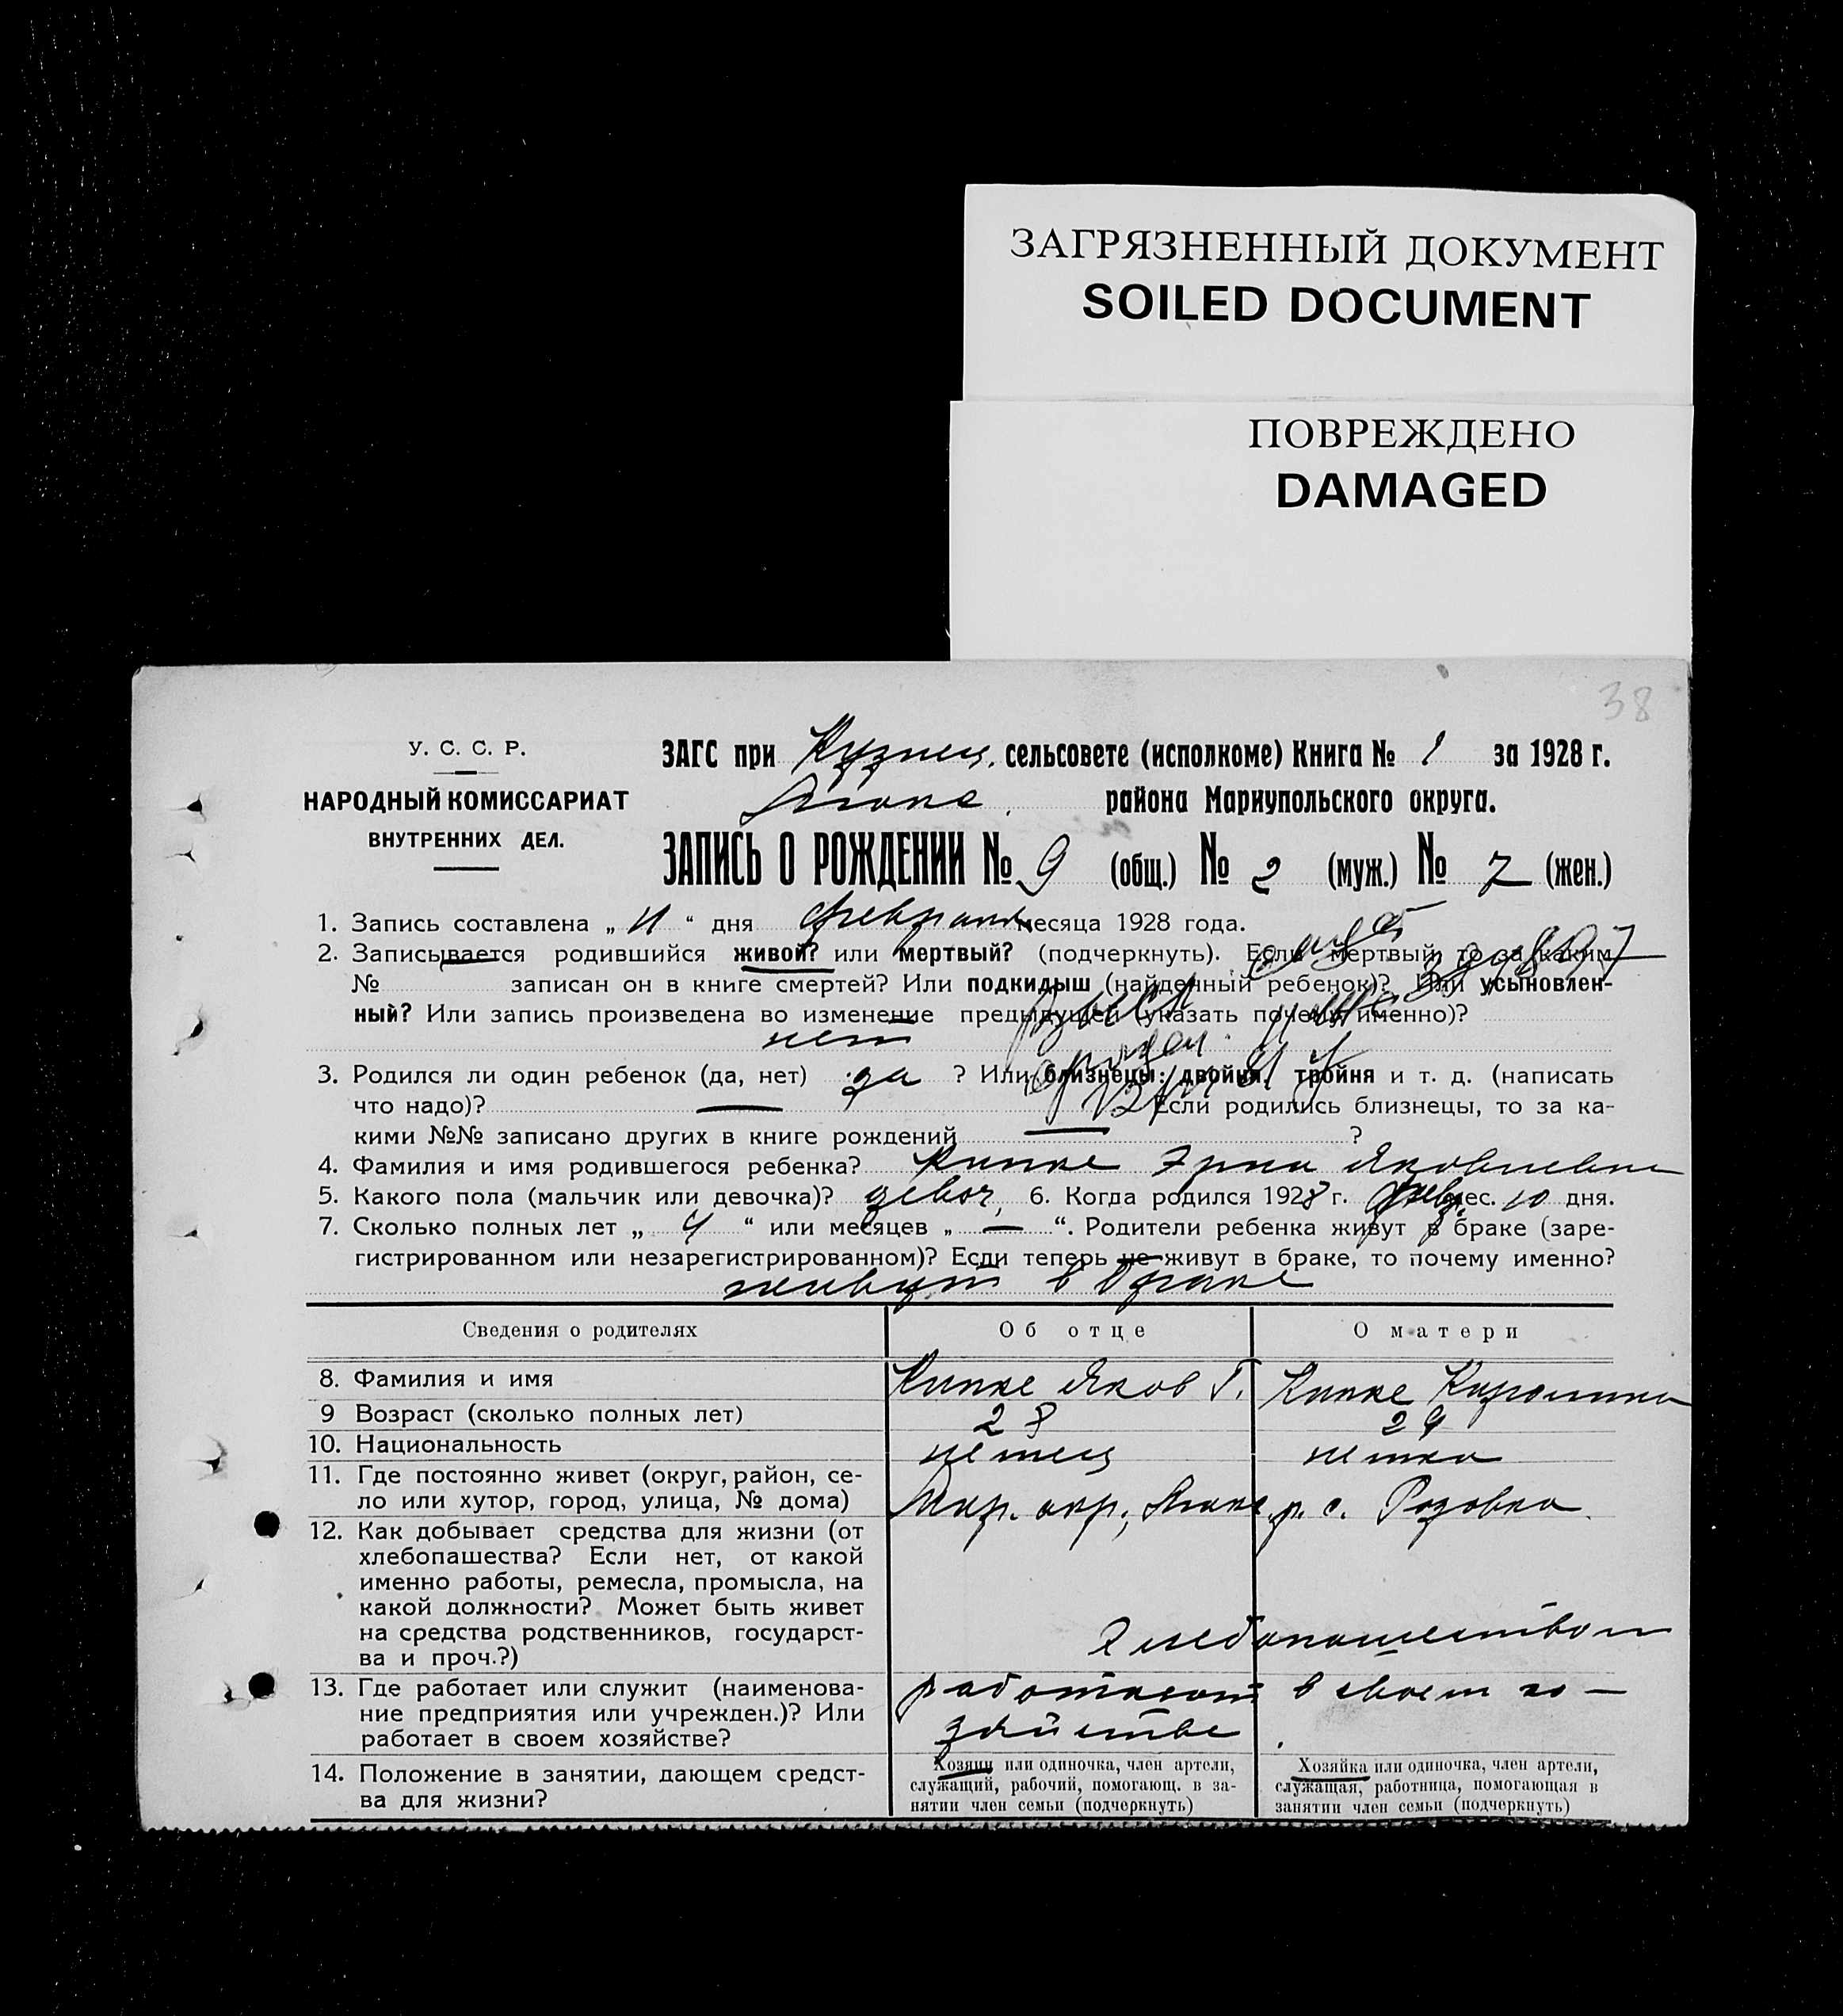 ЗАГРЯЗНЕННЫЙ ДОКУМЕНТ
SOILED DOCUMENT
ПОВРЕЖДЕНО
DAMAGED
38
У. С. С. Р.
НАРОДНЫЙ КОМИССАРИАТ
ВНУТРЕННИХ ДЕЛ.
ЗАГС при Кузнец. сельсовете (исполкоме) Книга № 1 за 1928 г.
района Мариупольского округа.
ЗАПИСЬ О РОЖДЕНИИ № 9 (общ.) № 2 (муж.) № 7 (жен.)
1. Запись составлена „ 11 “ дня февраля месяца 1928 года.
2. Записывается родившийся живой? или мертвый? (подчеркнуть). Если мертвый, то за каким
№ записан он в книге смертей? Или подкидыш (найденный ребенок)? Или усыновлен-
ный? Или запись произведена во изменение предыдущей (указать почему именно)?
нет
3. Родился ли один ребенок (да, нет) да ? Или близнецы: двойня, тройня и т. д. (написать
что надо)? — Если родились близнецы, то за ка-
кими №№ записано других в книге рождений — ?
4. Фамилия и имя родившегося ребенка? Кипке Эрна Яковлевна
5. Какого пола (мальчик или девочка)? девоч, 6. Когда родился 1928 г. февр. мес. 10 дня.
7. Сколько полных лет „ 4 “ или месяцев „ — “. Родители ребенка живут в браке (заре-
гистрированном или незарегистрированном)? Если теперь не живут в браке, то почему именно?
живут в браке
Сведения о родителях Об отце О матери
8. Фамилия и имя Кипке Яков Г. Кипке Каролина
9 Возраст (сколько полных лет) 28 29
10. Национальность немец немка
11. Где постоянно живет (округ, район, се-
ло или хутор, город, улица, № дома) Мар. окр., р. с. Розовка
12. Как добывает средства для жизни (от
хлебопашества? Если нет, от какой
именно работы, ремесла, промысла, на
какой должности? Может быть живет
на средства родственников, государст-
ва и проч.?)
Хлебопашеством
13. Где работает или служит (наименова-
ние предприятия или учрежден.)? Или
работает в своем хозяйстве?
работают в своем хо-
зяйстве
14. Положение в занятии, дающем средст-
ва для жизни?
Хозяин или одиночка, член артели,
служащий, рабочий, помогающ. в за-
нятии член семьи (подчеркнуть)
Хозяйка или одиночка, член артели,
служащая, работница, помогающая в
занятии член семьи (подчеркнуть)